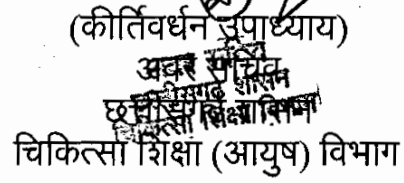 (कीर्तिवर्धन उपाध्याय)
अवर सचिव
छत्तीसगढ़ शासन
चिकित्सा शिक्षा (आयुष) विभाग